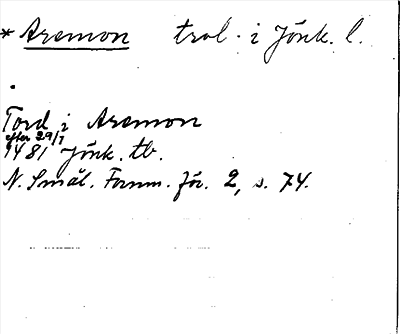 * Aremon trol. i Jönk. l.
Tord i Aremon
efter 29/7
1481 Jönk. tb.
N. Smål. Fornm. för. 2, s. 74.